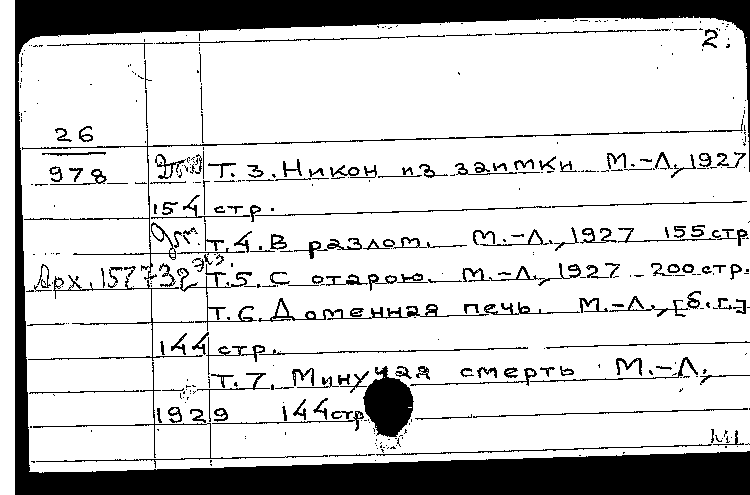 2.
26
978
Т. 3. Никон из заимки М.-Л., 1927
154 стр.
Т. 4. В разлом. М.-Л., 1927 155 стр
Арх. 157732 экз. Т. 5. С отарою. М.-Л., 1927 - 200 стр.
Т. 6. Доменная печь. М.-Л., [б. г.]
144 стр.
Т. 7. Минучая смерть М.-Л.,
1929 144 стр